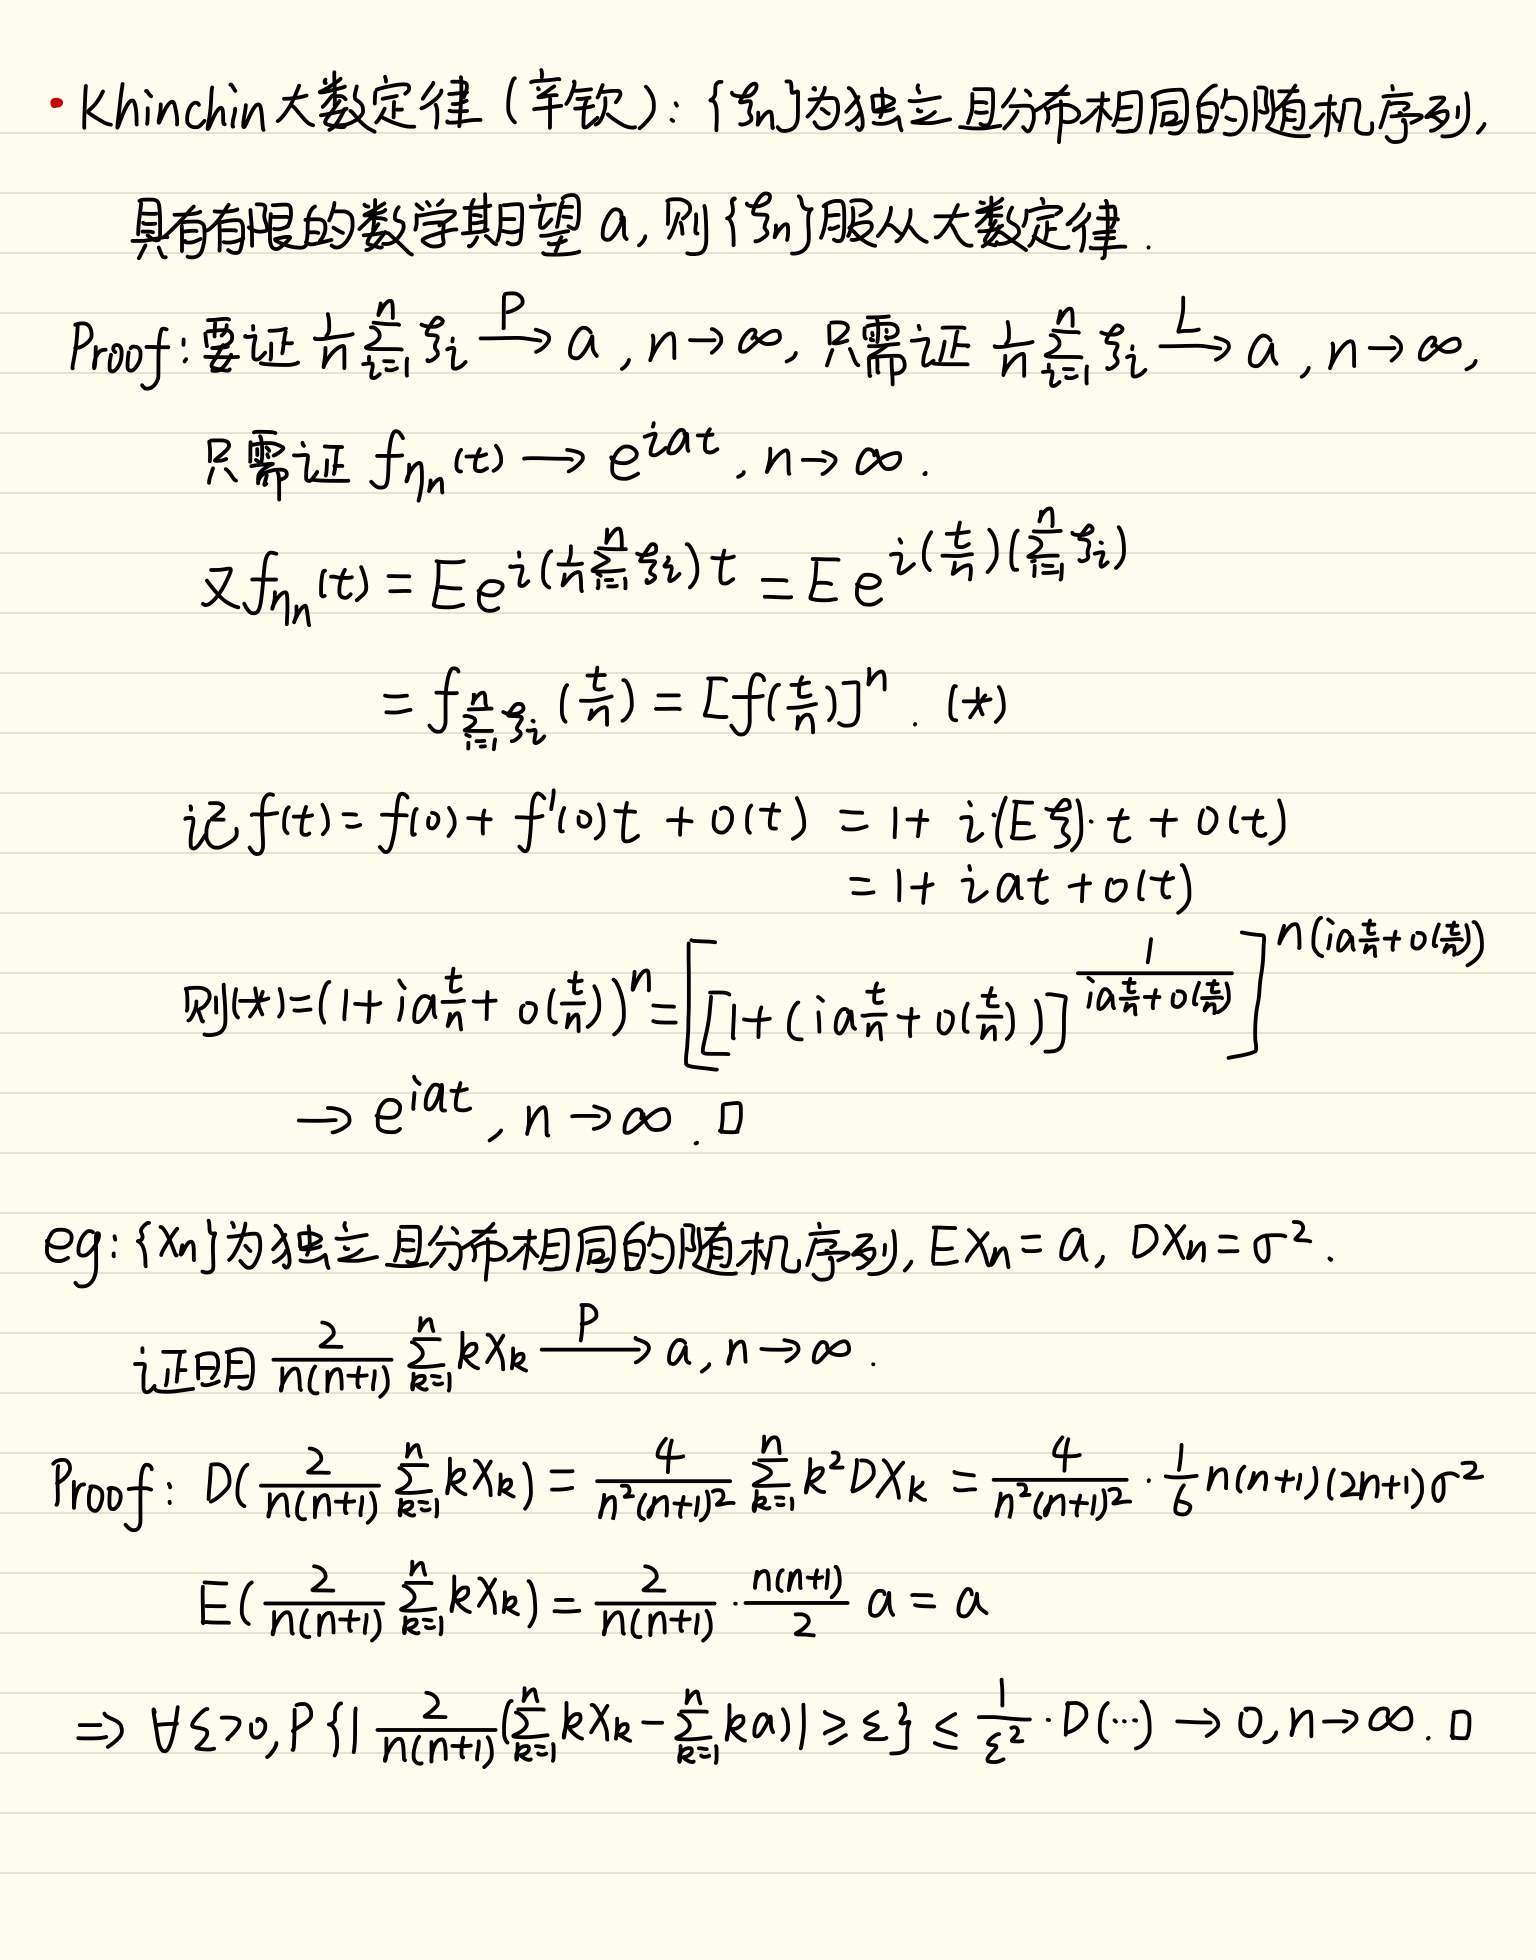 · Khinchin大数定律（辛钦）: {ξn}为独立且分布相同的随机序列,
具有有限的数学期望 a, 则{ξn}服从大数定律.
Proof: 要证 1/n ∑_{i=1}^{n} ξi —P→ a , n→∞, 只需证 1/n ∑_{i=1}^{n} ξi —L→ a , n→∞,
只需证 f_{ηn}(t) → e^{iat}, n→∞.
又 f_{ηn}(t) = E e^{i(1/n ∑_{i=1}^{n} ξi)t} = E e^{i(t/n)(∑_{i=1}^{n} ξi)}
= f_{∑_{i=1}^{n} ξi}(t/n) = [f(t/n)]^n . (*)
记 f(t) = f(0) + f'(0)t + o(t) = 1 + i·(Eξ)·t + o(t)
= 1 + iat + o(t)
则(*) = (1 + ia t/n + o(t/n))^n = [[1 + (ia t/n + o(t/n))]^{1/(ia t/n + o(t/n))}]^{n(ia t/n + o(t/n))}
→ e^{iat} , n→∞. □
eg: {Xn}为独立且分布相同的随机序列, EXn = a, DXn = σ².
证明 2/(n(n+1)) ∑_{k=1}^{n} kXk —P→ a, n→∞.
Proof: D(2/(n(n+1)) ∑_{k=1}^{n} kXk) = 4/(n²(n+1)²) ∑_{k=1}^{n} k²DXk = 4/(n²(n+1)²) · 1/6 n(n+1)(2n+1)σ²
E(2/(n(n+1)) ∑_{k=1}^{n} kXk) = 2/(n(n+1)) · n(n+1)/2 a = a
⇒ ∀ε>0, P{|2/(n(n+1)) (∑_{k=1}^{n} kXk − ∑_{k=1}^{n} ka)| ≥ ε} ≤ 1/ε² · D(···) → 0, n→∞. □